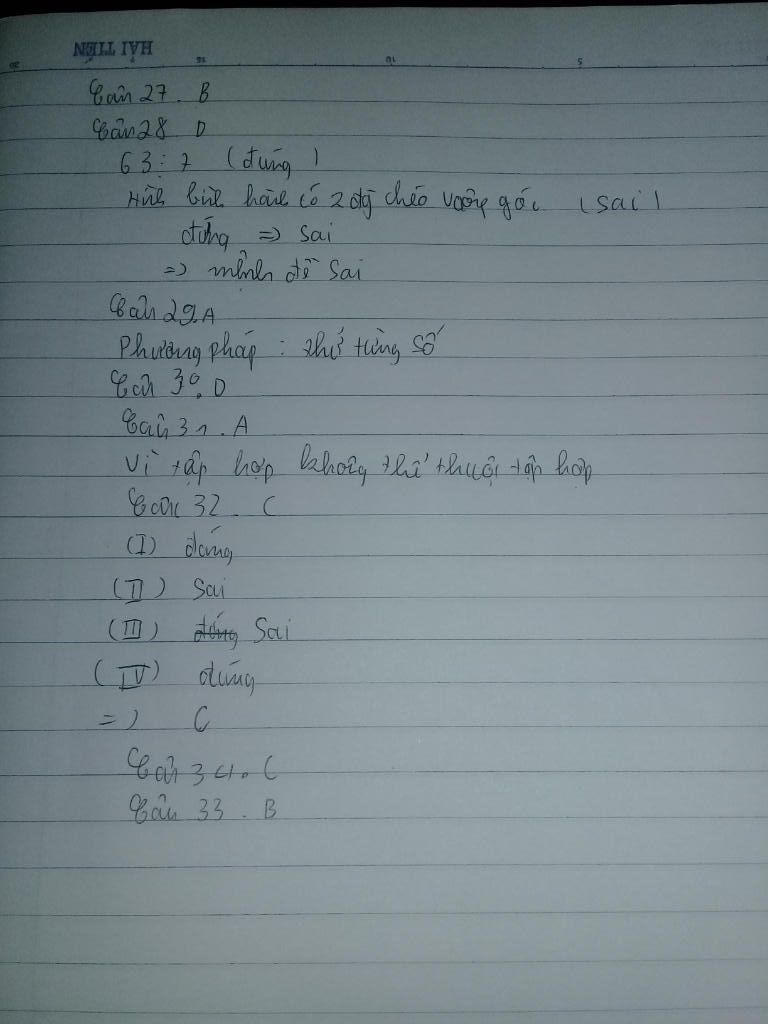 HẢI TIẾN
20 15 10 5
Câu 27. B
Câu 28 D
63 : 7 (đúng)
Hình bình hành có 2 đg chéo vuông góc (sai)
đúng => sai
=> mệnh đề sai
Câu 29. A
Phương pháp : thử từng số
Câu 30. D
Câu 31. A
Vì tập hợp không thể thuộc tập hợp
Câu 32. C
(I) đúng
(II) Sai
(III) đúng Sai
(IV) đúng
=) C
Câu 34. C
Câu 33. B